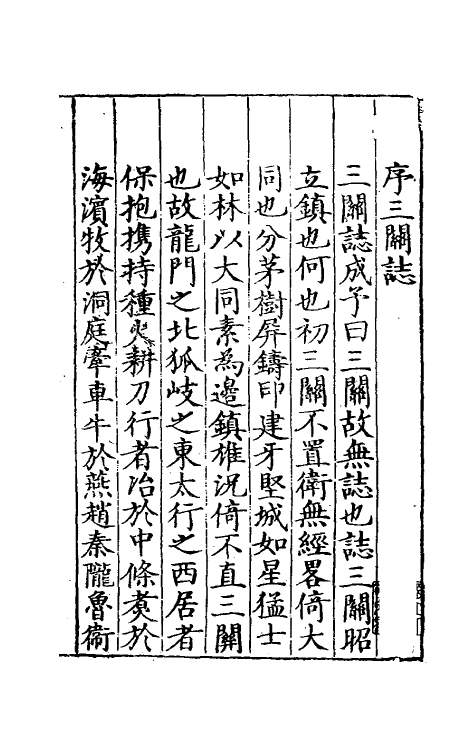 序三關誌
三關誌成予曰三關故無誌也誌三關昭
立鎮也何也初三關不置衛無經畧倚大
同也分茅樹屏鑄印建牙堅城如星猛士
如林以大同素為邊鎮雄況倚不直三關
也故龍門之北狐岐之東太行之西居者
保抱携持種火耕刀行者冶於中條煑於
海濱牧於洞庭牽車牛於燕趙秦隴魯衛